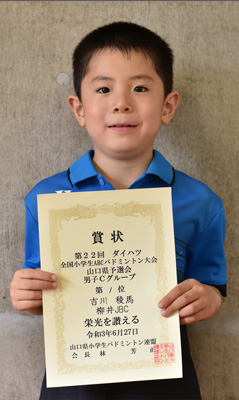 賞状
第22回 ダイハツ
全国小学生ABCバドミントン大会
山口県予選会
男子Cグループ
第八位
吉川 稜馬
柳井JBC
栄光を讃える
令和3年6月27日
山口県小学生バドミントン連盟
会長 林 芳正